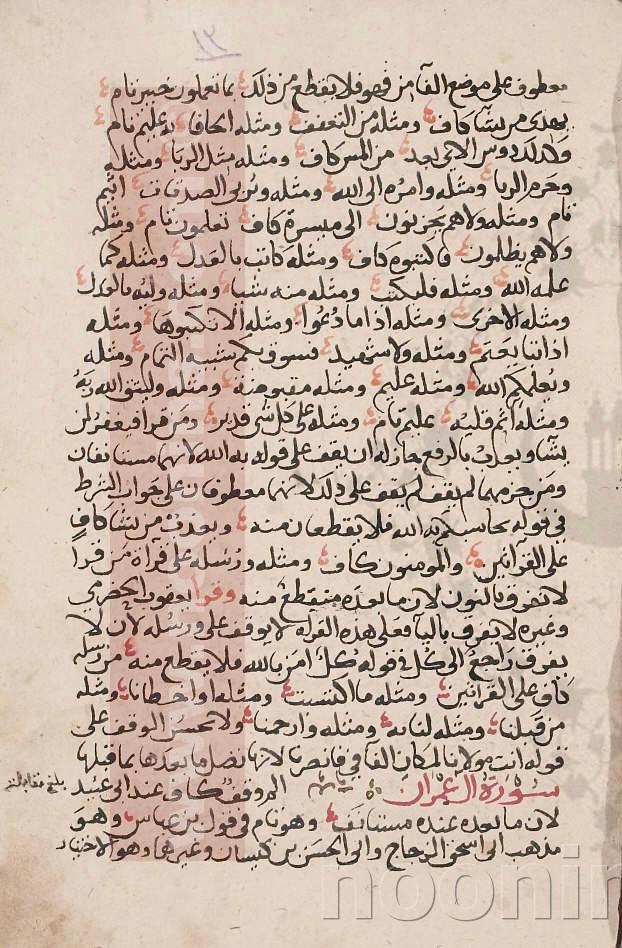 ١٣
معطوف على موضع الفآء من فهو فلا يقطع من ذلك بما تعملون خبير تام
يهدي من يشآء كاف ومثله من التعفف ومثله الحافا به عليم تام
من المس كاف ومثله مثل الربا ومثله
وحرم الربا ومثله وامره الى الله ومثله ويربي الصدقات اثيم
تام ومثله ولا هم يحزنون الى ميسرة كاف تعلمون تام ومثله
ولا هم يظلمون فاكتبوه كاف ومثله كاتب بالعدل ومثله كما
علمه الله ومثله فليكتب ومثله منه شيا ومثله وليه بالعدل
ومثله الاخرى ومثله اذا ما دعوا ومثله الا تكتبوها ومثله
اذا تبايعتم ومثله ولا شهيد فسوق بكم شبيه التمام ومثله
ويعلمكم الله ومثله عليم ومثله مقبوضة ومثله وليتق الله ربه
ومثله اثم قلبه عليم تام ومثله على كل شي قدير ومن قرا فيغفر لمن
يشآء ويعذب بالرفع جاز له ان يقف على قوله به الله لانهما مستانفان
ومن جزمهما لم يقف على ذلك لانهما معطوفان على جواب الشرط
في قوله يحاسبكم به الله فلا يقطعان منه ويعذب من يشآ كاف
على القرآتين والمومنون كاف ومثله ورسله على قرآة من قرا
لا نفرق بالنون لان ما بعده منقطع منه وقرا يعقوب الحضرمي
وغيره لا يفرق باليآ فعلى هذه القرآة لا يوقف على ورسله لان لا
يفرق راجع الى كل في قوله كل امن بالله فلا يقطع منه من رسله
كاف على القرآتين ومثله ما اكتسبت ومثله او اخطانا ومثله
من قبلنا ومثله لنا به ومثله وارحمنا ولا يحسن الوقف على
قوله انت مولانا لمكان الفآ في فانصرنا لانها تصل ما بعدها بما قبلها
سورة ال عمران الم وقف كاف عند ابي عبيد
لان ما بعده عنده مستانف وهو تام في قول بن عباس وهو
مذهب ابي اسحق الزجاج وابي الحسن بن كيسان وغيرهما وهو الاختيار
noonin